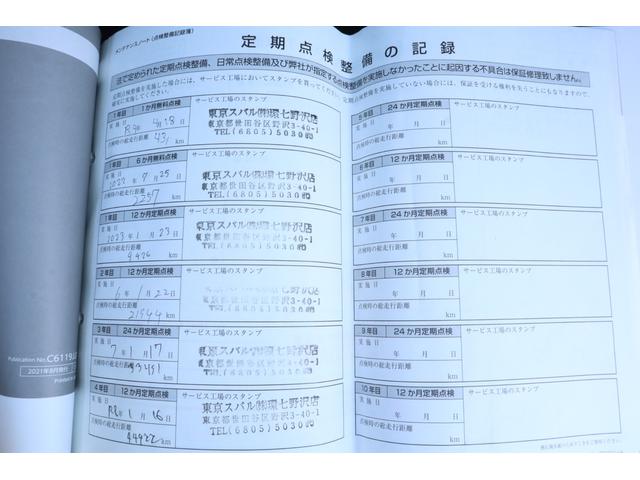 メンテナンスノート(点検整備記録簿)
定期点検整備の記録
法で定められた定期点検整備、日常点検整備及び弊社が指定する点検整備を実施しなかったことに起因する不具合は保証修理致しません。
定期点検整備を実施した場合には、サービス工場においてスタンプを貰ってください。定期点検整備を実施していない場合には、保証を受ける権利を失うことにもなりますので、
確実に実施してください。
1年目 1か月無料点検 サービス工場のスタンプ
実施 4月18日
点検時の総走行距離 431 km
東京スバル㈱環七野沢店
東京都世田谷区野沢3-40-1
TEL(6805)5030㈹
1年目 6か月無料点検 サービス工場のスタンプ
実施 2022年7月25日
点検時の総走行距離 2257 km
東京スバル㈱環七野沢店
東京都世田谷区野沢3-40-1
TEL(6805)5030㈹
1年目 12か月定期点検 サービス工場のスタンプ
実施 2023年1月23日
点検時の総走行距離 km
東京スバル㈱環七野沢店
東京都世田谷区野沢3-40-1
TEL(6805)5030㈹
2年目 12か月定期点検 サービス工場のスタンプ
実施 6年1月22日
点検時の総走行距離 21544 km
3年目 24か月定期点検 サービス工場のスタンプ
実施 7年1月17日
点検時の総走行距離 km
東京スバル㈱環七野沢店
東京都世田谷区野沢3-40-1
TEL(6805)5030㈹
4年目 12か月定期点検 サービス工場のスタンプ
実施 R8年1月16日
点検時の総走行距離 44922 km
東京スバル㈱環七野沢店
東京都世田谷区野沢3-40-1
TEL(6805)5030㈹
5年目 24か月定期点検 サービス工場のスタンプ
実施 年 月 日
点検時の総走行距離 km
6年目 12か月定期点検 サービス工場のスタンプ
実施 年 月 日
点検時の総走行距離 km
7年目 24か月定期点検 サービス工場のスタンプ
実施 年 月 日
点検時の総走行距離 km
8年目 12か月定期点検 サービス工場のスタンプ
実施 年 月 日
点検時の総走行距離 km
9年目 24か月定期点検 サービス工場のスタンプ
実施 年 月 日
点検時の総走行距離 km
10年目 12か月定期点検 サービス工場のスタンプ
実施 年 月 日
点検時の総走行距離 km
Publication No. C6119
2021年8月発行
Printed